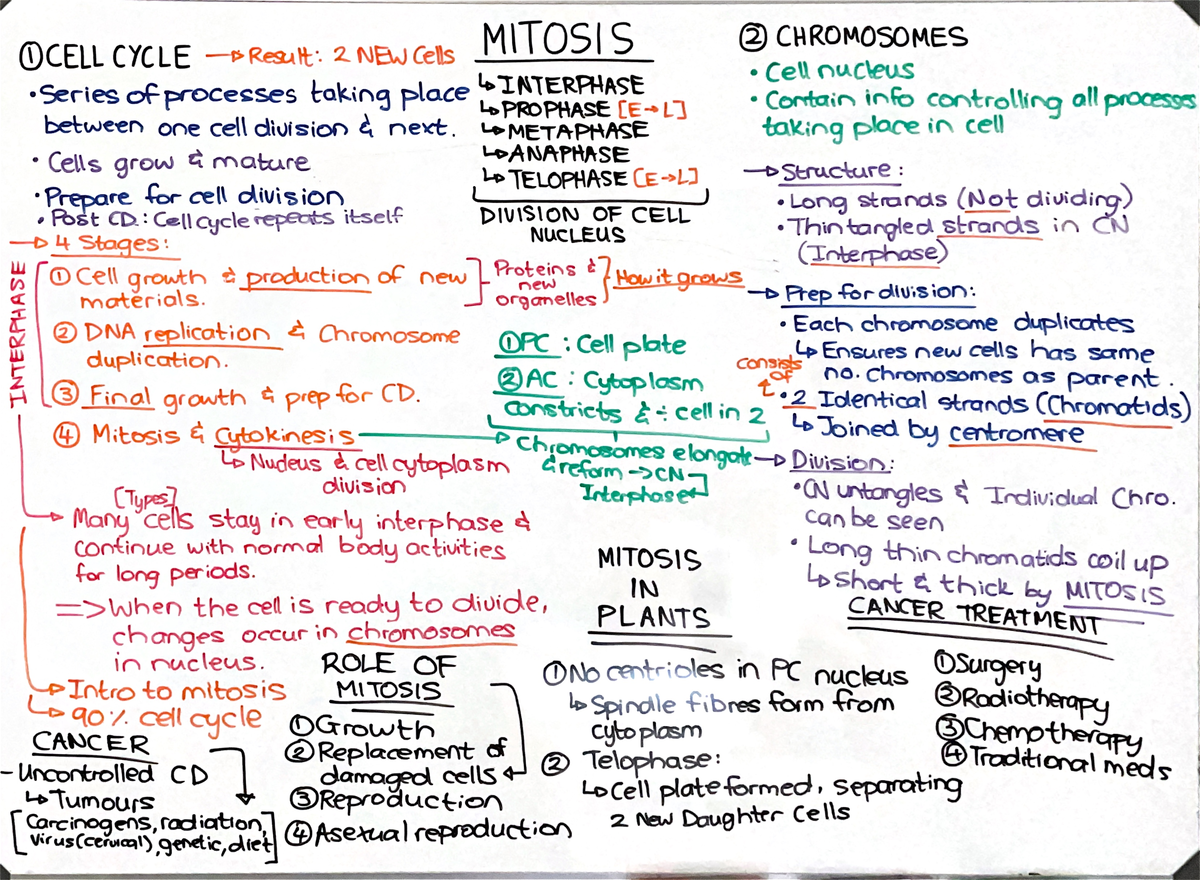 MITOSIS
↳ INTERPHASE
↳ PROPHASE [E→L]
↳ METAPHASE
↳ ANAPHASE
↳ TELOPHASE [E→L]
DIVISION OF CELL
NUCLEUS
① CELL CYCLE → Result: 2 NEW Cells
• Series of processes taking place
between one cell division & next.
• Cells grow & mature
• Prepare for cell division
• Post CD.: Cell cycle repeats itself
→ 4 Stages:
INTERPHASE
① Cell growth & production of new
materials.
Proteins &
new
organelles
How it grows
② DNA replication & Chromosome
duplication.
③ Final growth & prep for CD.
④ Mitosis & Cytokinesis
↳ Nucleus & cell cytoplasm
division
① PC : Cell plate
② AC : Cytoplasm
constricts & ÷ cell in 2
Chromosomes elongate
& reform → CN
Interphase
[Types]
→ Many cells stay in early interphase &
continue with normal body activities
for long periods.
=> When the cell is ready to divide,
changes occur in chromosomes
in nucleus.
→ Intro to mitosis
↳ 90% cell cycle
② CHROMOSOMES
• Cell nucleus
• Contain info controlling all processes
taking place in cell
→ Structure:
• Long strands (Not dividing)
• Thin tangled strands in CN
(Interphase)
→ Prep for division:
• Each chromosome duplicates
↳ Ensures new cells has same
no. chromosomes as parent.
consists
of
• 2 Identical strands (Chromatids)
↳ Joined by centromere
→ Division:
• CN untangles & Individual Chro.
can be seen
• Long thin chromatids coil up
↳ Short & thick by MITOSIS
CANCER
- Uncontrolled CD
↳ Tumours
[Carcinogens, radiation,
Virus (cervical), genetic, diet]
ROLE OF
MITOSIS
① Growth
② Replacement of
damaged cells
③ Reproduction
④ Asexual reproduction
MITOSIS
IN
PLANTS
① No centrioles in PC nucleus
↳ Spindle fibres form from
cytoplasm
② Telophase:
↳ Cell plate formed, separating
2 New Daughter Cells
CANCER TREATMENT
① Surgery
② Radiotherapy
③ Chemotherapy
④ Traditional meds